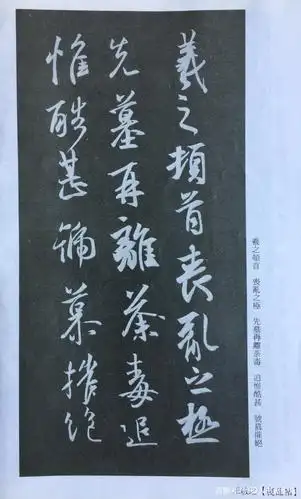 羲之頓首喪亂之極
先墓再離荼毒追
惟酷甚號慕摧絕
羲之頓首　喪亂之極　先墓再離荼毒　追惟酷甚　號慕摧絕